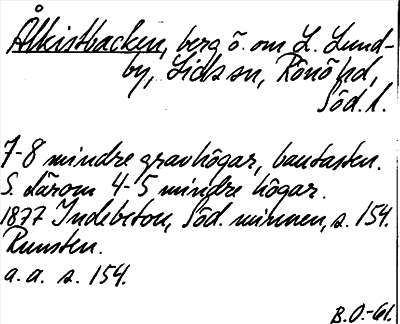 Ålkistbacken, berg ö. om L. Lund-
by, Lids sn, Rönö hd,
Söd. l.
7-8 mindre gravhögar, bautasten.
S. därom 4-5 mindre högar.
1877 Indebetou, Söd. minnen, s. 154.
Runsten.
a. a. s. 154.
B. O.-61.